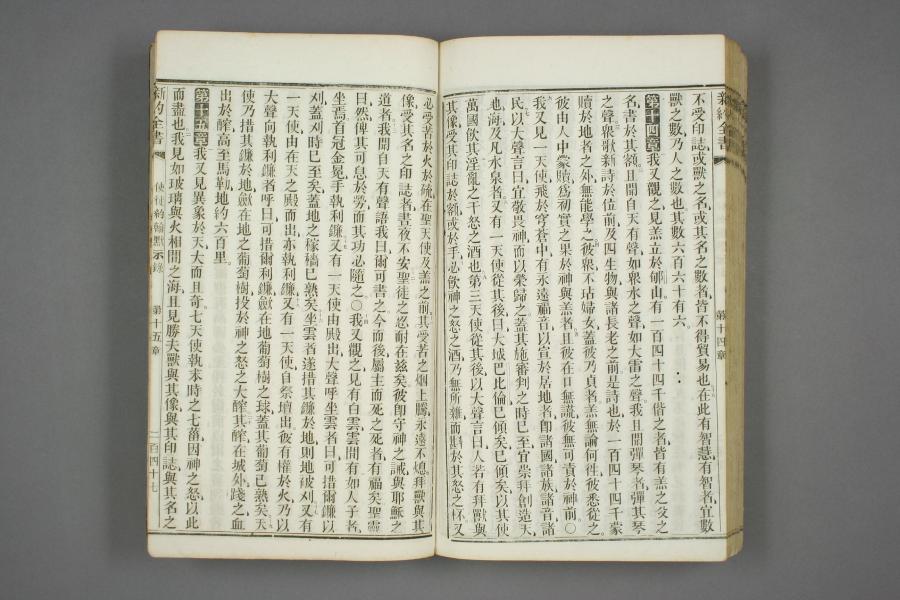 新約全書
第十四章
不受印誌或獸之名或其名之數者皆不得貿易也在此有智慧有智者宜數
獸之數乃人之數也其數六百六十有六。
第十四章我又觀之見羔立於郇山有一百四十四千偕之者皆有羔之父之
名書於其額且聞自天有聲如衆水之聲如大雷之聲我且聞彈琴者彈其琴
之聲衆歌新詩於位前及四生物與諸長老之前是詩也於一百四十四千蒙
贖於地者之外無能學之彼衆不玷婦女蓋彼乃貞者羔無論何徃彼悉從之。
彼由人中蒙贖爲初實之果於神與羔者且彼在口無謊彼無可責於神前○
我又見一天使飛於穹蒼中有永遠福音以宣於居地者卽諸國諸族諸音諸
民以大聲言曰宜敬畏神而以榮歸之蓋其施審判之時已至宜崇拜創造天
地海及凡水泉者又有一天使從其後曰大城巴比倫已傾矣已傾矣以其使
萬國飲其淫亂之干怒之酒也第三天使從其後以大聲言曰人若有拜獸與
其像受其印誌於額或於手必飲神之怒之酒乃無所雜而斟於其怒之杯又
必受苦於火於硫在聖天使及羔之前其受苦之烟上騰永遠不熄拜獸與其
像受其名之印誌者晝夜不安聖徒之忍耐在兹矣彼卽守神之誡與耶穌之
道者我聞自天有聲語我曰爾可書之今而後屬主而死之死者有福矣聖靈
曰然俾其可息於勞而其功必隨之○我又觀之見有白雲雲間有如人子者
坐焉首冠金冕手執利鐮又有一天使由殿出大聲呼坐雲者曰可措爾鐮以
刈蓋刈時已至矣蓋地之稼穡已熟矣坐雲者遂措其鐮於地則地被刈又有
一天使由在天之殿而出亦執利鐮又有一天使自祭壇出彼有權於火乃以
大聲向執利鐮者呼曰可措爾利鐮斂在地葡萄樹之球蓋其葡萄已熟矣天
使乃措其鐮於地斂在地之葡萄樹投於神之怒之大醡其醡在城外踐之血
出於醡高至馬勒地約六百里。
第十五章我又見異象於天大而且奇七天使執末時之七菑因神之怒以此
而盡也我見如玻璃與火相間之海且見勝夫獸與其像與其印誌與其名之
新約全書
使徒約翰默示錄
第十五章
二百四十七